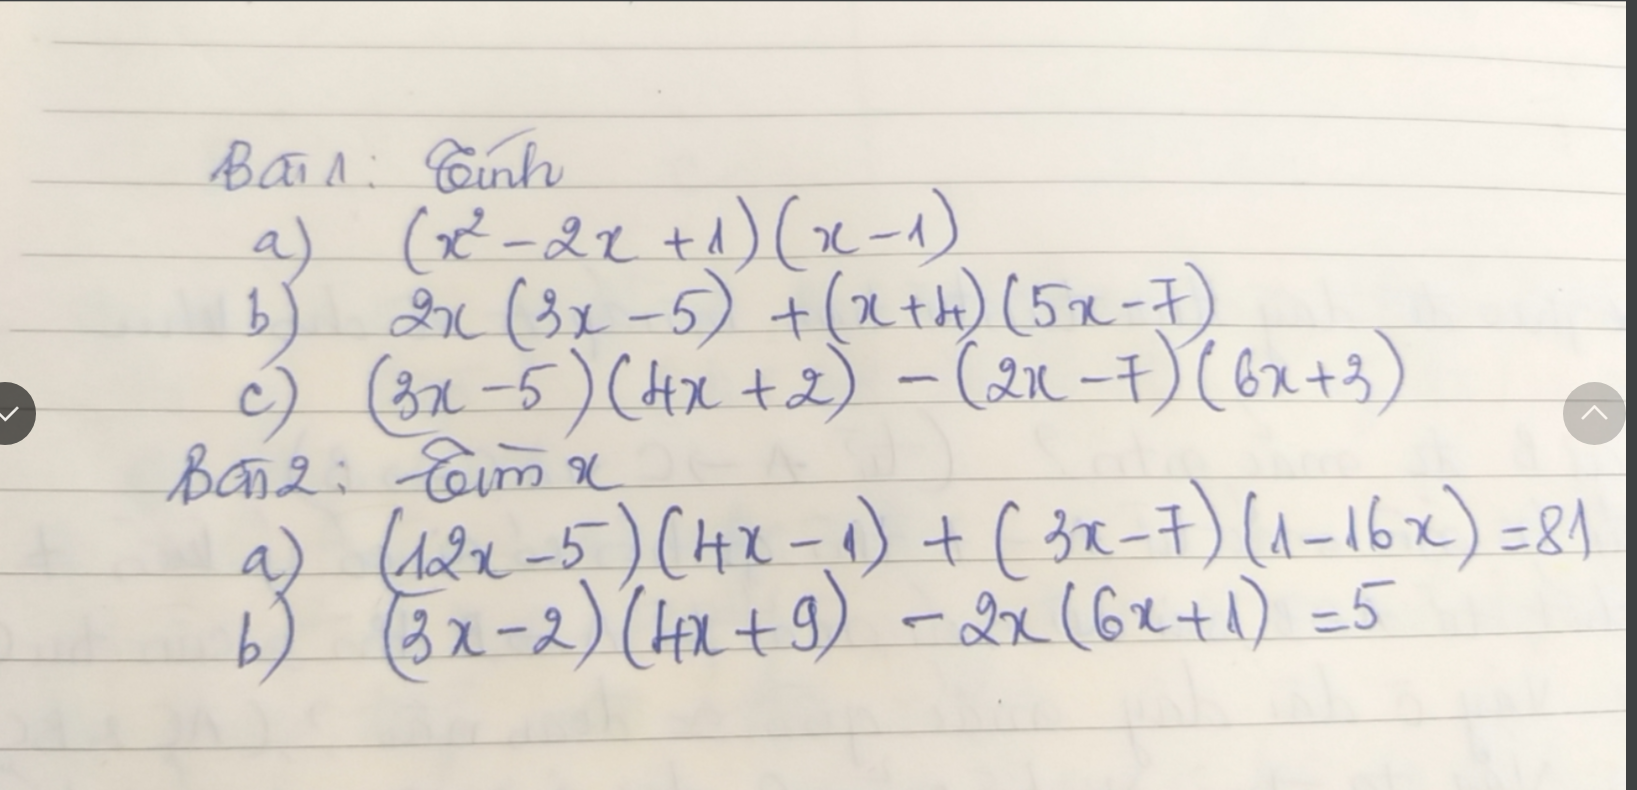 Bài 1: Tính
a) (x² - 2x + 1)(x - 1)
b) 2x (3x - 5) + (x + 4)(5x - 7)
c) (3x - 5)(4x + 2) - (2x - 7)(6x + 3)
Bài 2: Tìm x
a) (12x - 5)(4x - 1) + (3x - 7)(1 - 16x) = 81
b) (3x - 2)(4x + 9) - 2x(6x + 1) = 5